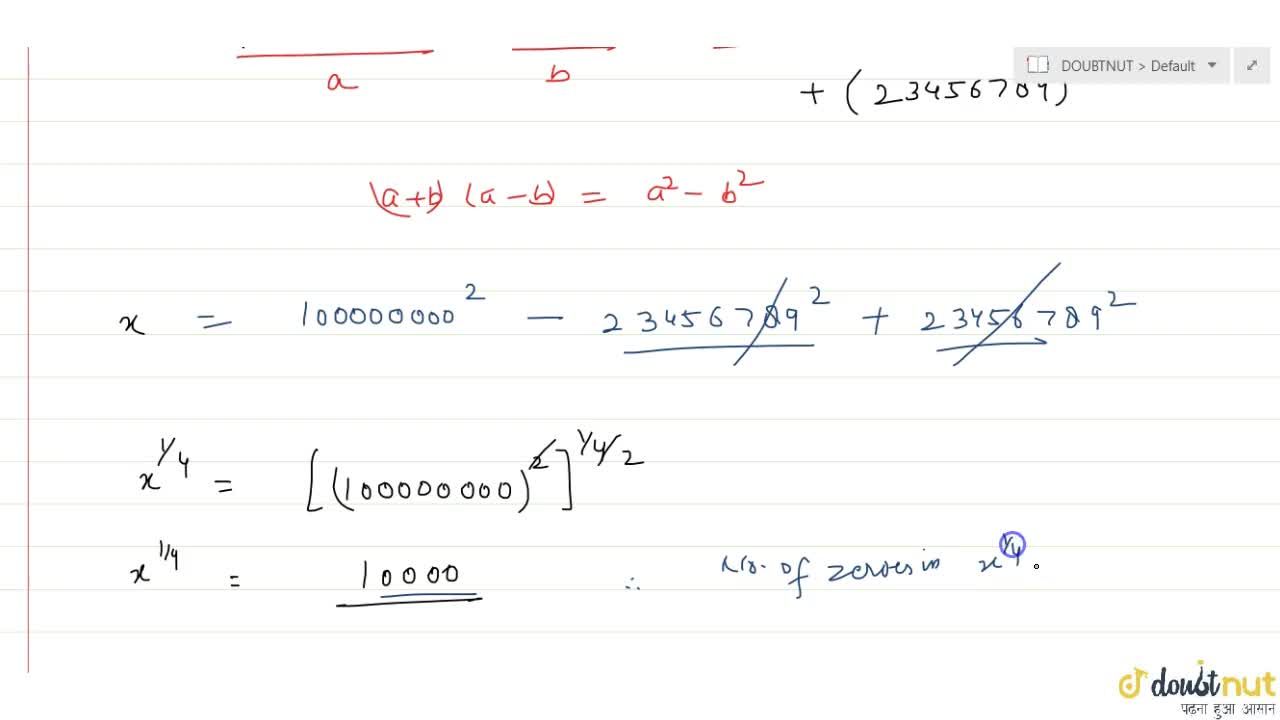 a b
DOUBTNUT > Default
+ (23456789)
(a+b) (a-b) = a² - b²
x = 100000000² - 23456789² + 23456789²
x^1/4 = [(100000000)^2]^1/4 2
x^1/4 = 10000 ∴ No. of zeroes in x^1/4 .
doubtnut
पढ़ना हुआ आसान